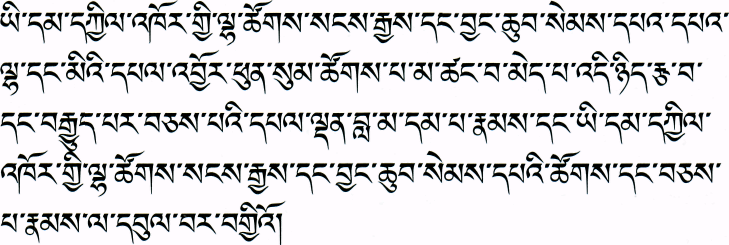 ཡི་དམ་དཀྱིལ་འཁོར་གྱི་ལྷ་ཚོགས་སངས་རྒྱས་དང་བྱང་ཆུབ་སེམས་དཔའ་དཔའ་
ལྷ་དང་མིའི་དཔལ་འབྱོར་ཕུན་སུམ་ཚོགས་པ་མ་ཚང་བ་མེད་པ་འདི་ཉིད་རྩ་བ་
དང་བརྒྱུད་པར་བཅས་པའི་དཔལ་ལྡན་བླ་མ་དམ་པ་རྣམས་དང་ཡི་དམ་དཀྱིལ་
འཁོར་གྱི་ལྷ་ཚོགས་སངས་རྒྱས་དང་བྱང་ཆུབ་སེམས་དཔའི་ཚོགས་དང་བཅས་
པ་རྣམས་ལ་དབུལ་བར་བགྱིའོ།